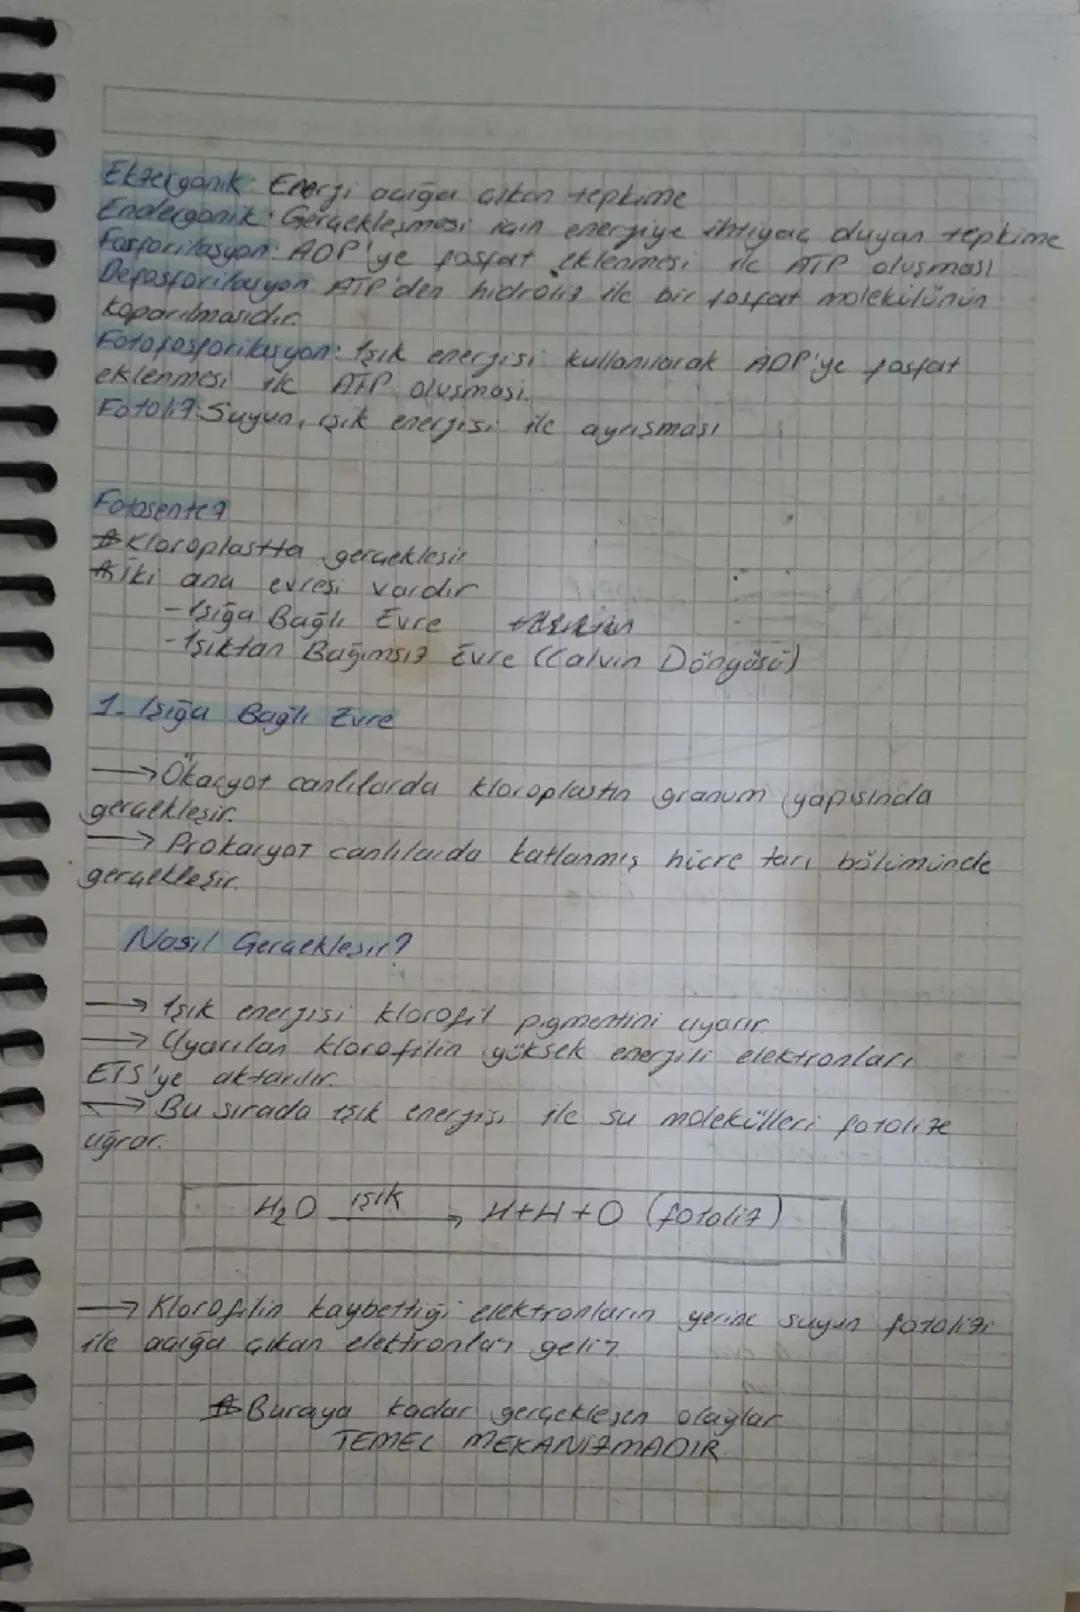 Ekzergonik: Enerji açığa çıkan tepkime
Endergonik: Gerçekleşmesi için energiye ihtiyaç duyan tepkime
Fosforilasyon: ADP'ye fosfat eklenmesi ile ATP oluşması
Defosforilasyon ATP'den hidroliz ile bir fosfat molekülünün
koparılmasıdır.
Fotofosforilasyon: Işık enerjisi kullanılarak ADP'ye fosfat
eklenmesi ile ATP oluşması.
Fotoliz: Suyun, ışık enerjisi ile ayrışması
Fotosentez
Kloroplastta gerçekleşir
İki ana evresi vardır
-Işığa Bağlı Evre
-Işıktan Bağımsız Evre (Calvin Döngüsü)
1. Işığa Bağlı Evre
→ Ökaryot canlılarda kloroplastın granum yapısında
gerçekleşir.
→ Prokaryot canlılarda katlanmış hücre zarı bölümünde
gerçekleşir.
Nasıl Gerçekleşir?
→ Işık enerjisi klorofil pigmentini uyarır.
→ Uyarılan klorofilin yüksek enerjili elektronları
ETS'ye aktarılır.
→ Bu sırada ışık enerjisi ile su molekülleri fotolize
uğrar.
H₂O ışık → H+H+O (fotoliz)
→ Klorofilin kaybettiği elektronların yerine suyun fotolizi
ile açığa çıkan elektronlar gelir
Buraya kadar gerçekleşen olaylar
TEMEL MEKANİZMADIR